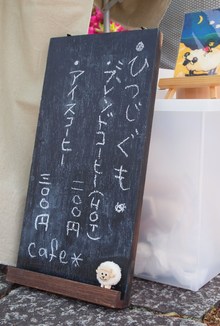 ひつじぐも
・ブレンドコーヒー(HOT)
二〇〇円
・アイスコーヒー
三〇〇円
cafe*